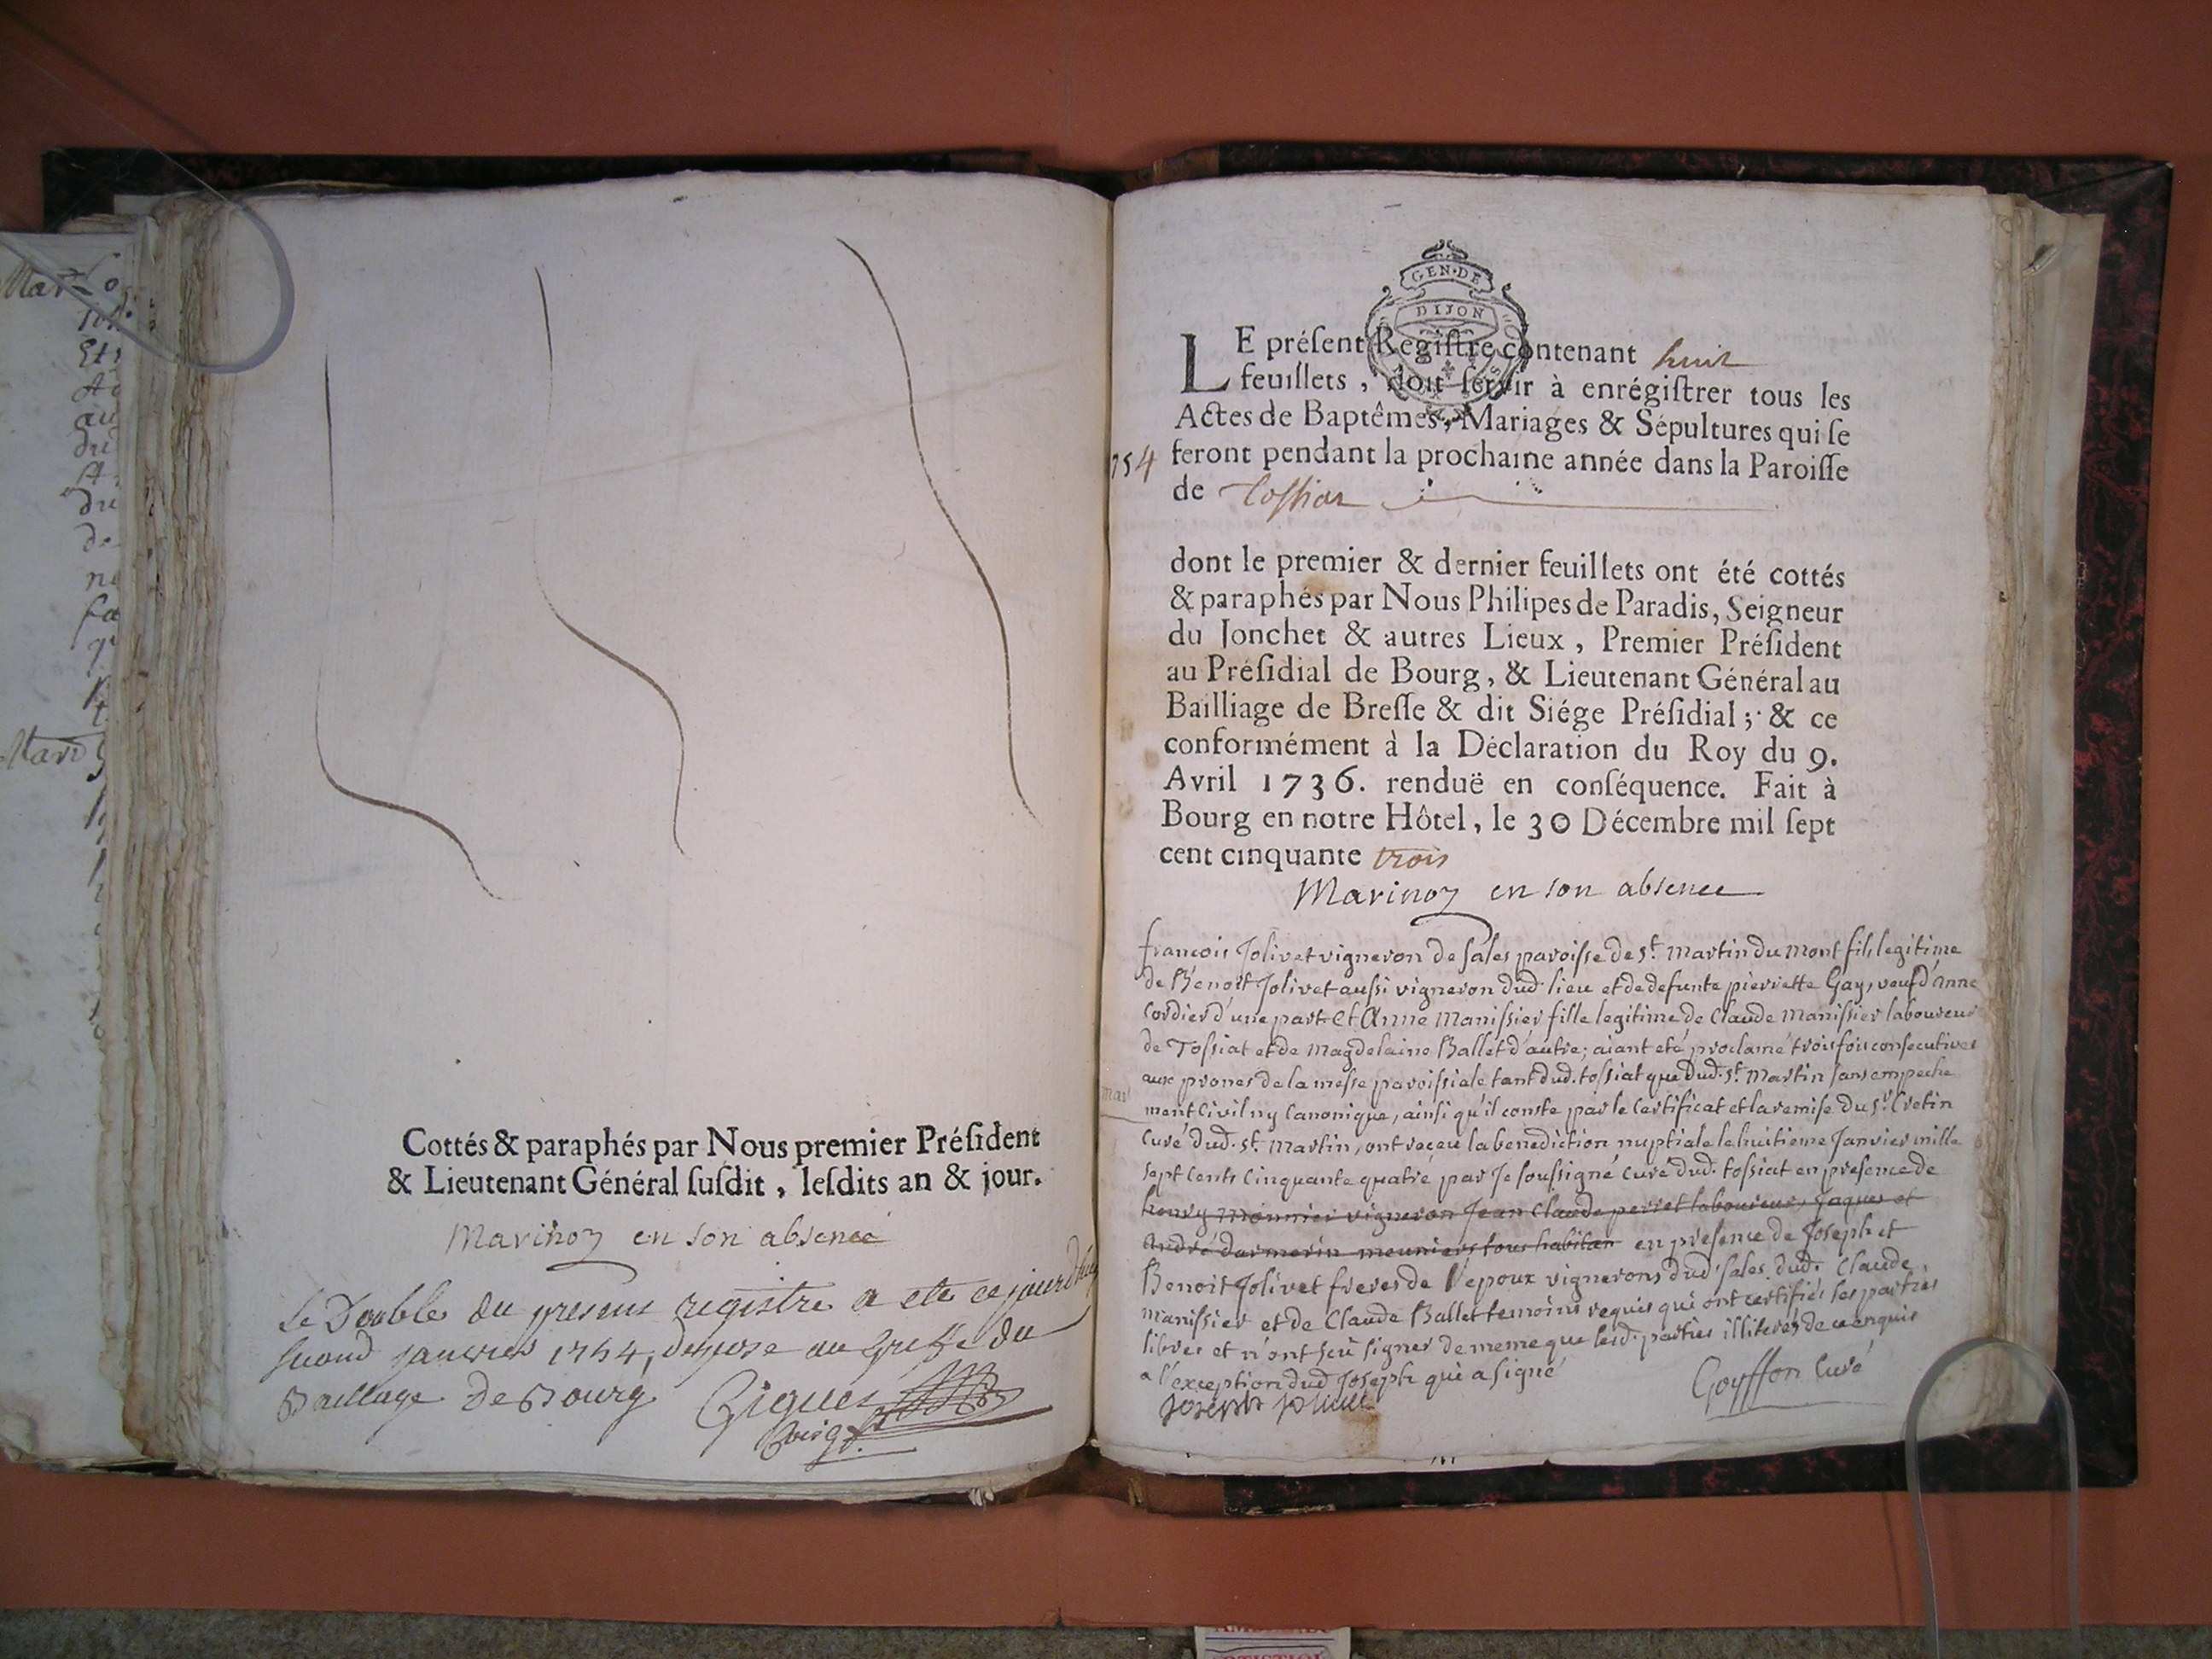 Cottés & paraphés par Nous premier Préſident
& Lieutenant Général ſuſdit, leſdits an & jour.
Marinon en son absence
Le Double du present registre a ete ce jourdhuy
second janvier 1754, depose au greffe du
Bailliage de Bourg
GEN·DE
DIJON
LE préſent Regiſtre contenant huit
feuillets, doit ſervir à enrégiſtrer tous les
Actes de Baptêmes, Mariages & Sépultures qui ſe
754 feront pendant la prochaine année dans la Paroiſſe
de Tossiat
dont le premier & dernier feuillets ont été cottés
& paraphés par Nous Philipes de Paradis, Seigneur
du Jonchet & autres Lieux, Premier Préſident
au Préſidial de Bourg, & Lieutenant Général au
Bailliage de Breſſe & dit Siége Préſidial; & ce
conformément à la Déclaration du Roy du 9.
Avril 1736. renduë en conſéquence. Fait à
Bourg en notre Hôtel, le 30 Décembre mil ſept
cent cinquante trois
Marinon en son absence
francois Jolivet vigneron de sales paroisse de St. martin du mont fils legitime
de Benoit Jolivet aussi vigneron dud. lieu et de defunte pierrette Gay, veuf d'anne
Cordier d'une part et Anne Manissier fille legitime de Claude Manissier laboureur
de Tossiat et de Magdelaine Ballet d'autre; aiant eté proclamé trois fois consecutives
aux prones de la messe paroissiale tant dud. tossiat que dud. St. Martin sans empeche
mar
ment Civil ny Canonique, ainsi qu'il conste par le Certificat et la remise du Sr. Cretin
Curé dud. St. Martin, ont reçeu la benediction nuptiale le huitieme Janvier mille
sept cents Cinquante quatre par Je soussigné curé dud. tossiat en presence de
henry monnier vigneron Jean Claude perret laboureur, Jaques et
André darmerin meuniers tous habitan en presence de Joseph et
Benoit Jolivet freres de l'epoux vignerons dud. sales dud. Claude
manissier et de Claude Ballet temoins requis qui ont certifiés les parties
libres et n'ont sçû signer de meme que lesd. parties illiterés de ce enquis
a l'exception dud Joseph qui a signé
Joseph jolivet
Goyffon Curé